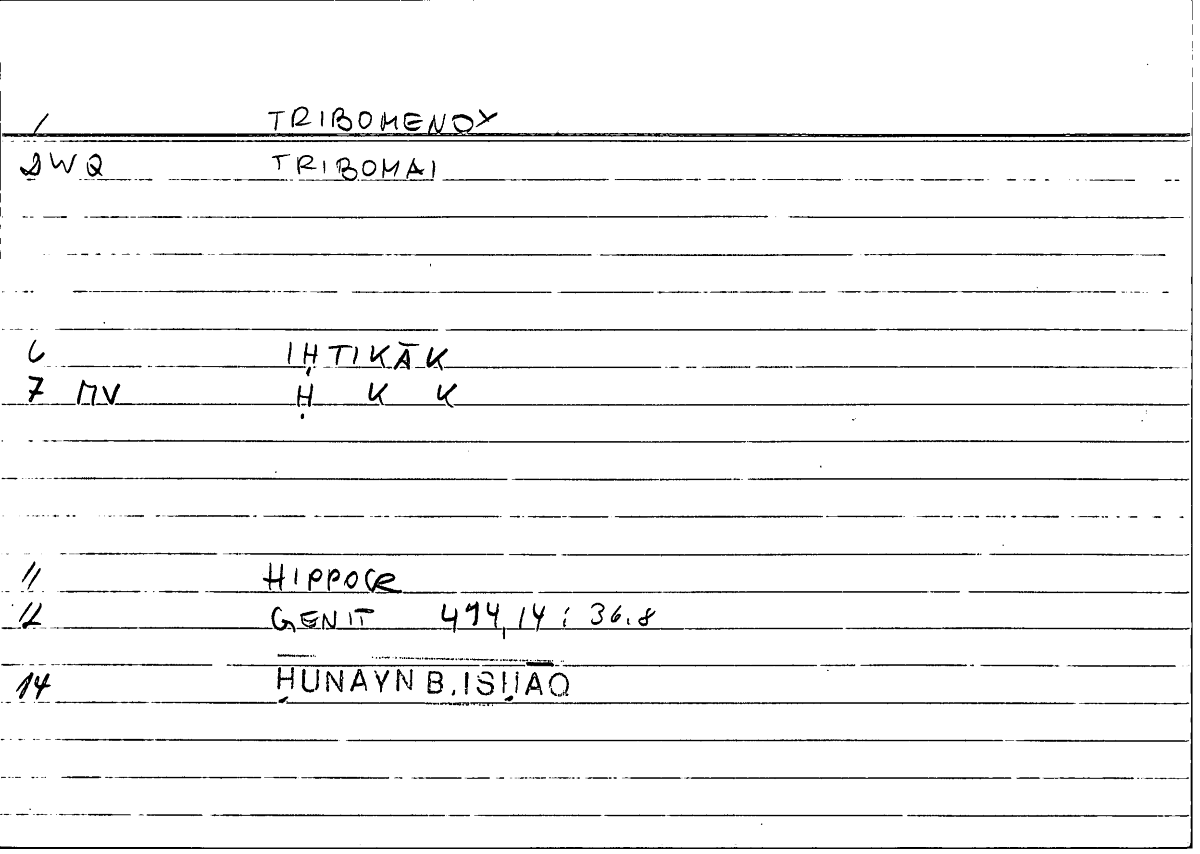 1 TRIBOMENOY
2 W Q TRIBOMAI
6 IḤTIKĀK
7 MV Ḥ K K
11 HIPPOCR
12 GENIT 474,14 ; 36.8
14 ḤUNAYN B.ISḤĀQ